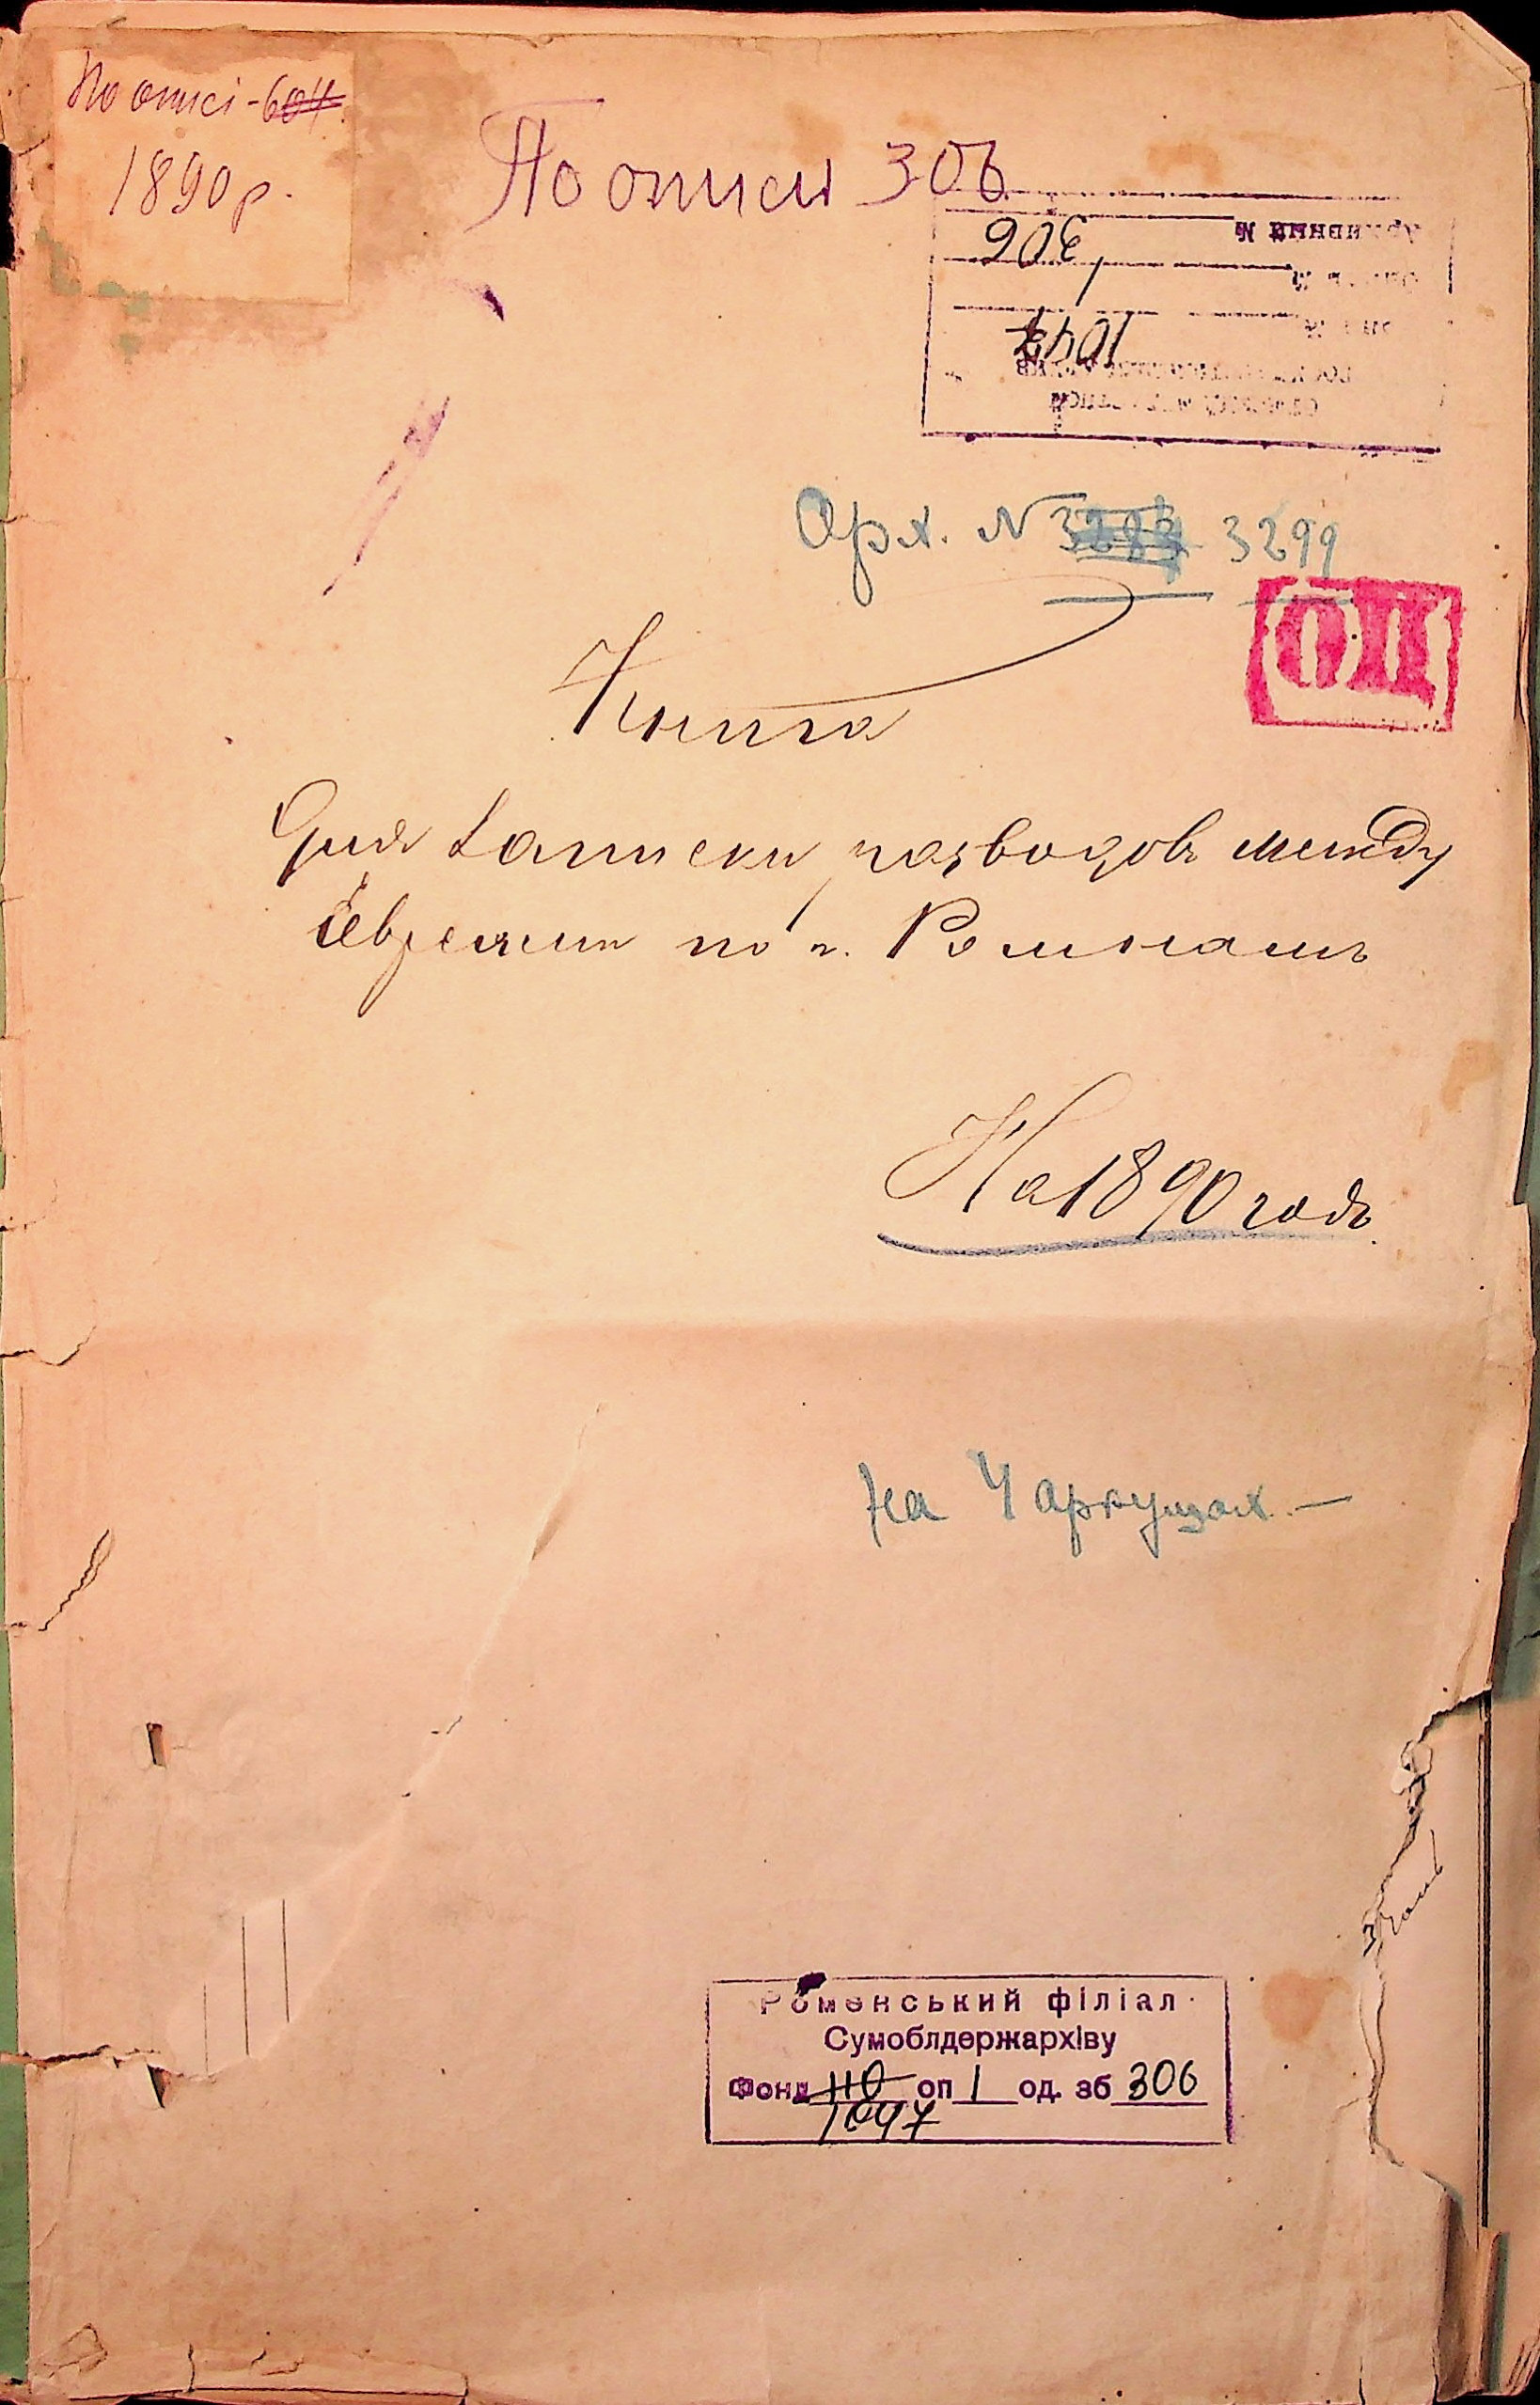 По описі - 604.
1890 р.
По описи 306
306
1047
Арх. N 3283 3299
ОЦ
Книга
Для записки разводовъ между
Евреями по г. Ромнамъ
На 1890 годъ
На 4 аркушах. —
Роменський філіал
Сумоблдержархіву
Фонд 110 оп 1 од. зб 306
1047